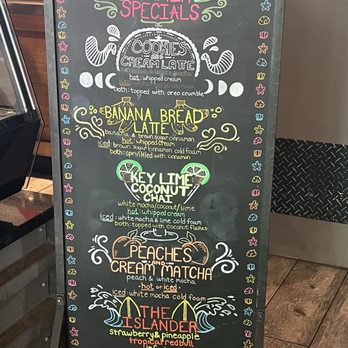 SPECIALS
COOKIES
AND
CREAM LATTE
hot: whipped cream
both: topped with oreo crumble
BANANA BREAD
LATTE
banana & brown sugar cinnamon
hot: whipped cream
iced: brown sugar cinnamon cold foam
both: sprinkled with cinnamon
KEY LIME
COCONUT
CHAI
white mocha/coconut/lime
hot: whipped cream
iced: white mocha & lime cold foam
both: topped with coconut flakes
PEACHES
AND
CREAM MATCHA
peach & white mocha
hot or iced
iced: white mocha cold foam
THE
ISLANDER
strawberry & pineapple
tropical red bull